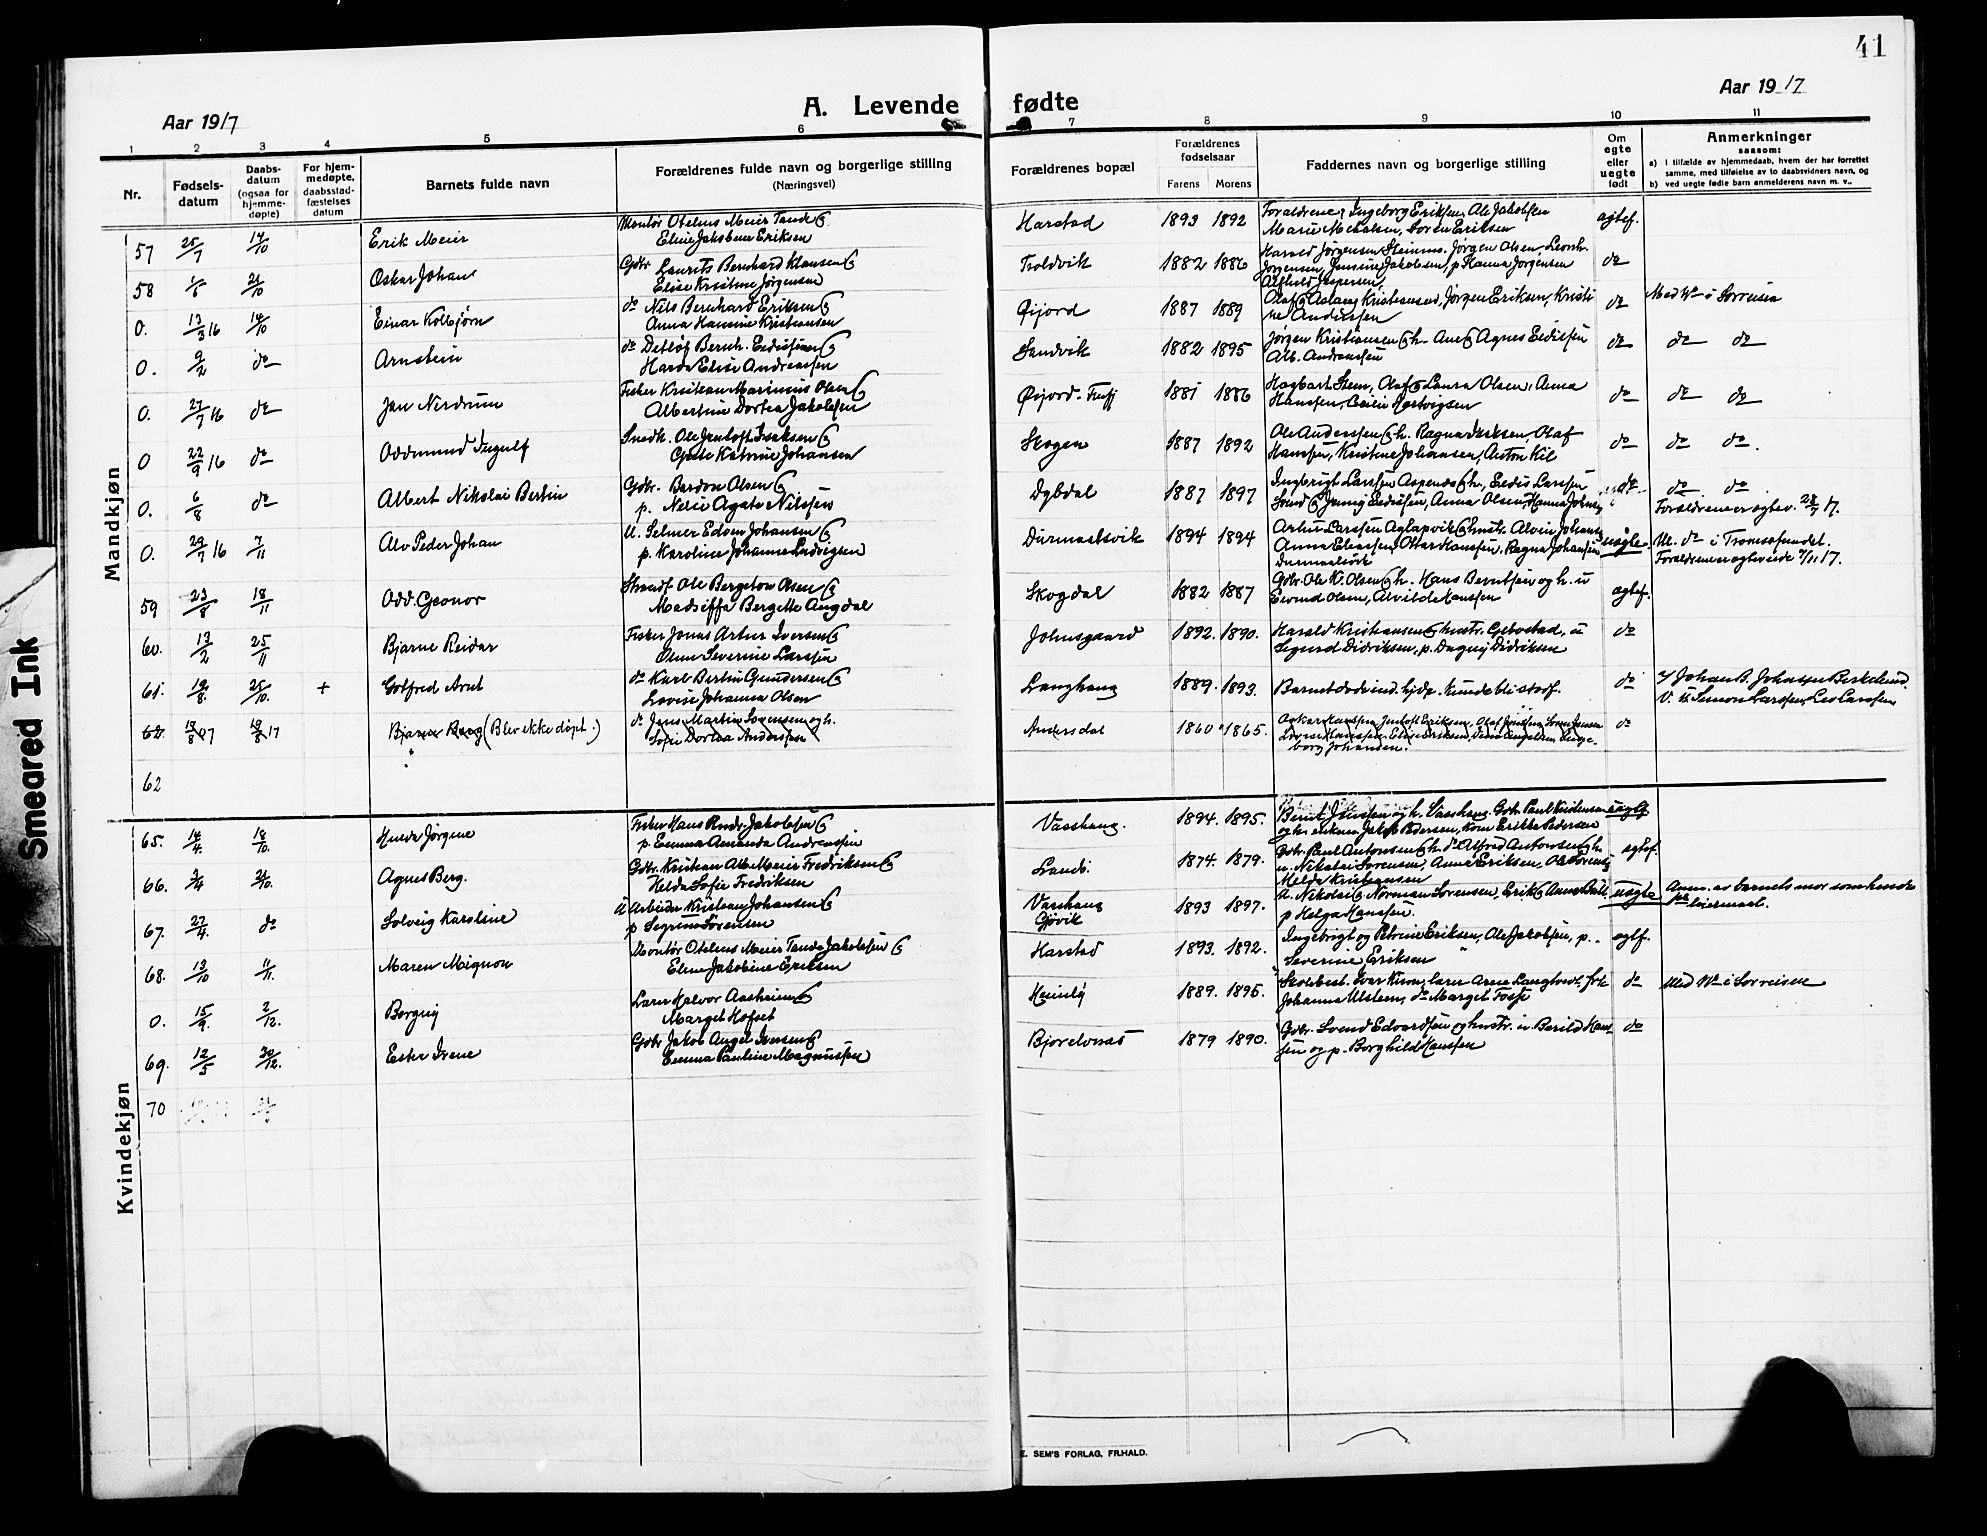 41
Aar 1917
A. Levende fødte
Aar 1917
1 2 3 4 5 6 7 8 9 10 11
Nr.
Fødsels-
datum
Daabs-
datum
(ogsaa for
hjemme-
døpte)
For hjem-
medøpte,
daabsstad-
fæstelses
datum
Barnets fulde navn
Forældrenes fulde navn og borgerlige stilling
(Næringsvei)
Forældrenes bopæl
Forældrenes
fødselsaar
Farens Morens
Faddernes navn og borgerlige stilling
Om
egte
eller
uegte
født
Anmerkninger
saasom:
a) i tilfælde av hjemmedaab, hvem der har forrettet
samme, med tilføielse av to daabsvidners navn, og
b) ved uegte fødte barn anmelderens navn m. v..
Mandkjøn
57 25/7 14/10 Erik Meier
Montør Otelius Meier Tande
Eline Jakobine Eriksen
Harstad 1893 1892
Forældrene, Ingeborg Eriksen, Ole Jakobsen
Marie Mikalsen, Søren Eriksen
egtef.
58 1/6 21/10 Oskar Johan
Gdbr. Laurits Bernhard Klausen
Elise Kristine Jørgensen
Troldvik 1882 1886
Harald Jørgensen Steinnes. Jørgen Olsen, Leonh.
Jørgensen, Jensine Jakobsen, p. Hanna Jørgensen
Alfhild Jespersen,
do
0. 13/3 16 14/10 Einar Kolbjørn
do Nils Bernhard Eriksen
Anna Hansine Kristiansen
Øijord 1887 1889
Olaf Aslaug Kristiansen, Jørgen Eriksen, Kristi
ne Anderssen
do
Med Wn i Sørreisa
0. 9/2 do Arnstein
do Detlof Bernh. Eedissen
Harda Elise Andreassen
Sandvik 1882 1895
Jørgen Kristiansen h. Ane Agnes Eedissen
Alb. Andreassen
do do do
0. 27/7 16 do Jan Nerdrum
Fisker Kristian Marinius Olsen
Albertine Dortea Jakobsen
Øijord 1881 1886
Hagbart Steen, Olaf Laura Olsen, Anna
Hanssen, Cecilie Hartvigsen
do do do
0 22/9 16 do Oddmund Ingulf
Snedk. Ole Jentoft Isaksen
Grete Katrine Johansen
Skogen 1887 1892
Ole Anderssen h. Ragna Isaksen, Olaf
Hanssen, Kristine Johansen, Anton Kil
do do do.
0. 6/8 do Albert Nikolai Bertin
Gdbr. Bardon Olsen
p. Nelie Agate Nilssen
Dybdal 1887 1897
Ingbrigt Larssen Aspenes h., Eedis Larssen
Svend Jenny Eedissen, Anna Olsen, Hanna Johns
do do do
Forældrene er egtev. 28/7 17.
0. 29/7 16 7/11 Alv Peder Johan
U. Selmer Edsen Johansen
p. Karoline Johanne Ludvigsen
Durmaalsvik 1894 1894
Artur Larssen Aglapvik hustr. Alvin Johans
Anna Eliassen, Ottar Hanssen, Ragna Johansen
Durmaalsvik
uegte.
Ul. do i Tromsøsundet.
Forældrene er egteviede 7/11 17.
59 23/8 18/11 Odd Geonor
Strands. Ole Bergeton Olsen
Madseffa Bergette Angdal
Skogdal 1882 1887
Gdbr. Ole K. Olsen h. Hans Berntsen og h. u
Eivind Olsen, Alvilde Hanssen
egtef.
60. 13/2 25/11 Bjarne Reidar
Fisker Jonas Artur Iversen
Olene Severine Larssen
Johnsgaard 1892. 1890.
Harald Kristiansen hustr. Gibostad, u
Sigurd Didriksen, p. Dagny Didriksen
do
61. 19/8. 25/10. + Gotfred Arnt
do Karl Bertin Gundersen
Lovise Johanna Olsen
Langhang 1889. 1893.
Barnet døde ind. hjdp. kunde bli stadf.
do
V. Simon Larssen,
62. 18/8 17 19/8 17 Bjarne Berg (Blev ikke døpt.)
do Jens Martin Sørensen og h.
Sofie Dortea Anderssen
Andersdal 1860 1865.
Oskar Hanssen, Jentoft Eriksen, Olaf
Lovise Hanssen, Elise Eriksen,
borg Johansen.
do
62
Kvindekjøn
65. 14/4. 18/10. Hilda Jørgine
Fisker Hans Andr. Jakobsen
p. Emma Amanda Andreassen
Vasshaug. 1894. 1895.
Bernt Jensen og h. Vasshaug. Gdbr. Paul Kristensen
og h. enkem. Jakob Pedersen, kone Erikke Pedersen
uegte
66. 3/4 21/10. Agnes Berg.
Gdbr. Kristian Alb. Meier Fredriksen
Helda Sofie Fredriksen
Lands. 1874. 1879.
Gdbr. Paul Antonsen h. do Alfred Antonsen h.
u. Nikolai Sørensen, Anne Eriksen, Ole Sørens
Helda Kristiansen
egtef.
67. 27/4. do Solveig Karoline
U Arbeider Kristian Johansen
p Segrun Sørensen
Vasshaug
Gjøvik
1893 1897.
U. Nikolai Norman Sørensen, Erik
p Helga Hanssen.
uegte
Anm. av barnets mor som hendes
leiermaal.
68. 13/10 11/11. Maren Mignon
Montør Otelius Meier Tande Jakobsen
Eline Jakobine Eriksen
Harstad 1893. 1892.
Ingebrigt og Petrine Eriksen, Ole Jakobsen, p.
Severine Eriksen
egtf.
0. 15/9. 2/12. Borgny
Lærer Halvor Aasheim
Marget Hofset
Heimly 1889. 1895.
Skolebest. Ivar Kirsn, lærer Arne Langtvedt, frk
Johanna Ulstein, do Marget Fosse
do
Med Wn i Sørreisa
69. 12/5 30/12. Ester Irene
Gdbr Jakob Angel Iversen
Emma Pauline Magnussen
Bjorelvnes 1879 1890.
Gdbr. Svend Edvardsen og hustr. u Berild Hans
sen og p. Borghild Hanssen
do
70
E. SEM'S FORLAG, FR.HALD.
Smeared Ink